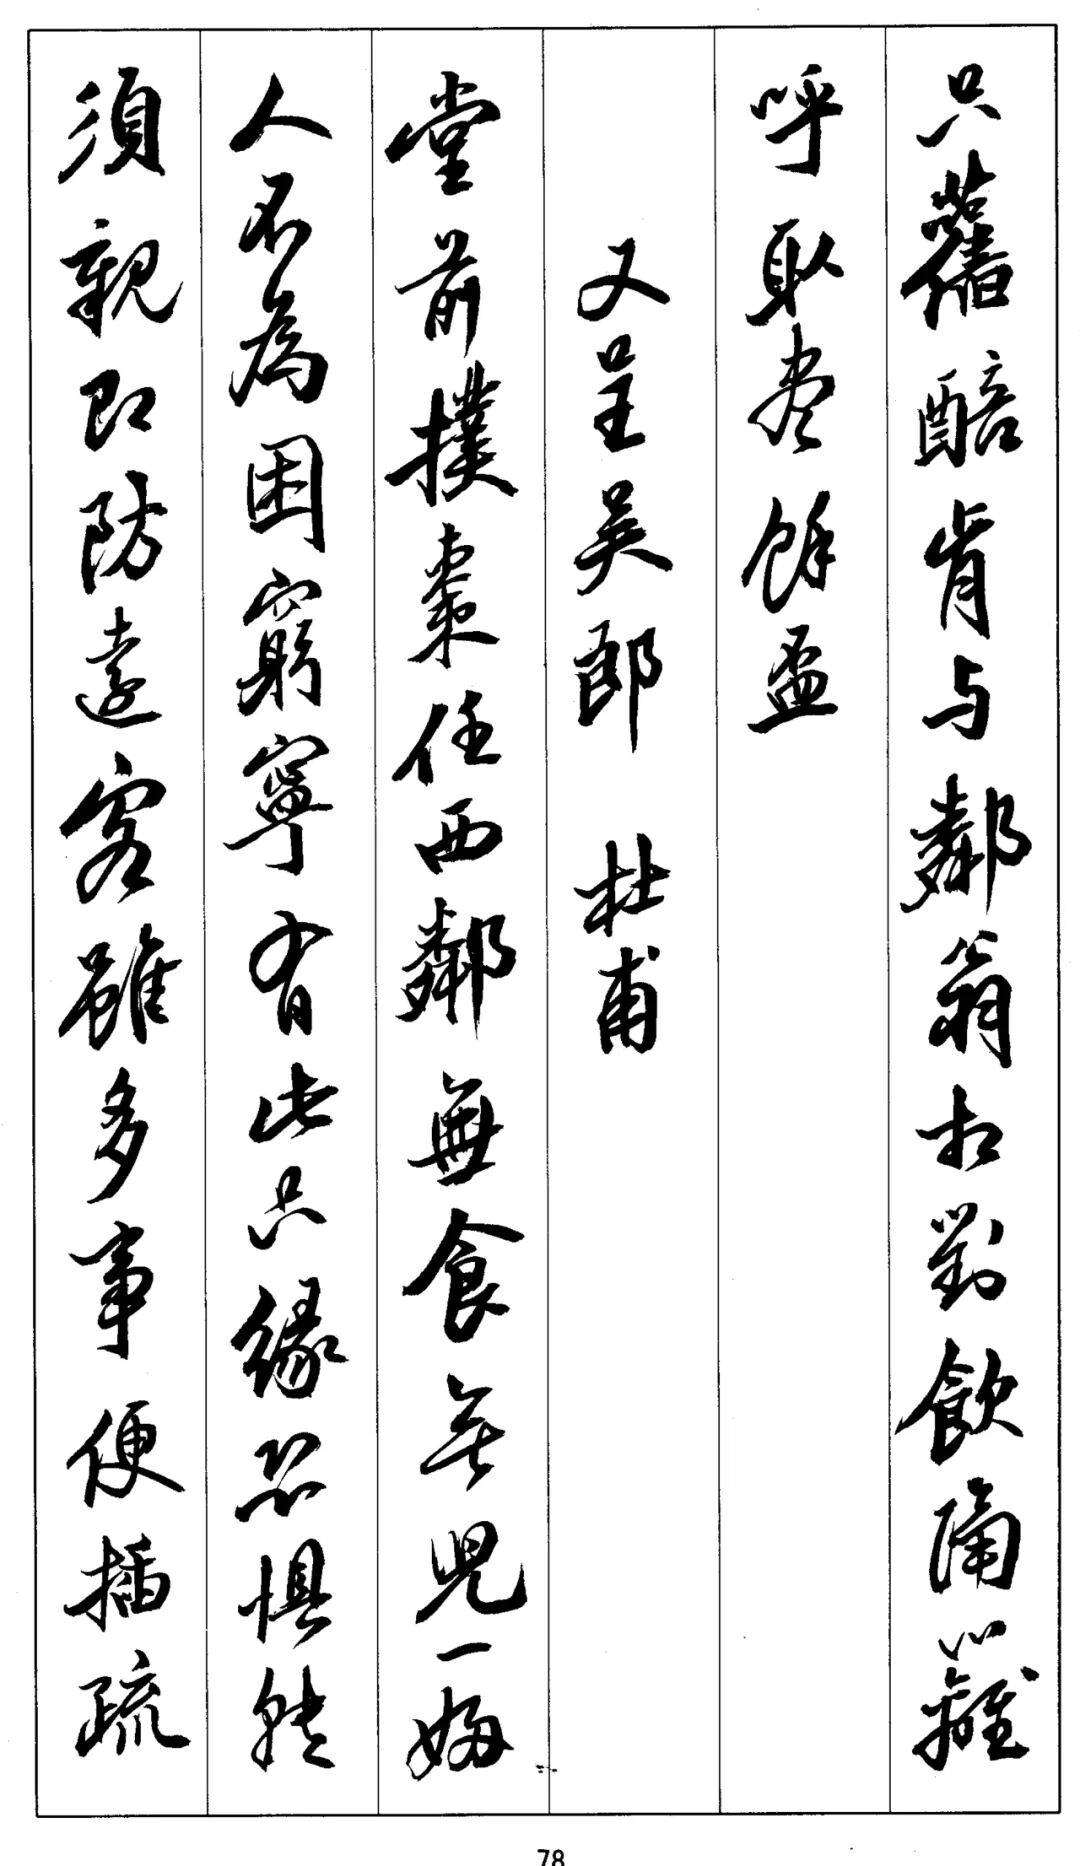 只舊醅肯与鄰翁相對飲隔籬
呼取尽餘盃
又呈吴郎 杜甫
堂前撲棗任西鄰無食無兒一婦
人不為困窮寧有此只緣恐懼轉
須親即防遠客雖多事便插疏
78